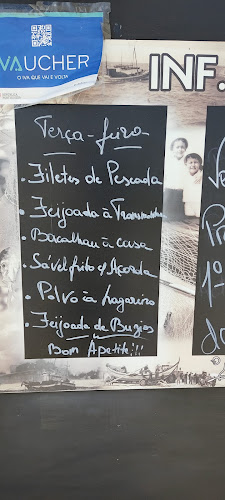 IVAUCHER
O IVA QUE VAI E VOLTA
INF.
Terça-feira
• Filetes de Pescada
• Feijoada à Transmontana
• Bacalhau à casa
• Sável frito c/ Açorda
• Polvo à Lagareiro
• Feijoada de Buzios
Bom Apetite!!!
1º